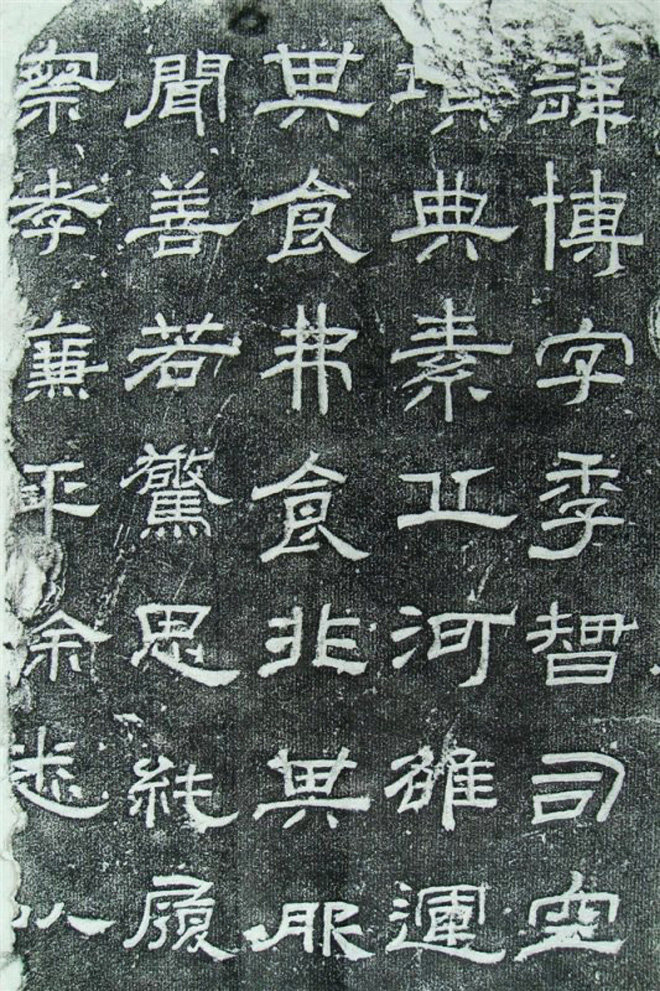 諱博字季智司空
典素丘河雒運
其食弗食非其服
聞善若驚思純履
察孝廉